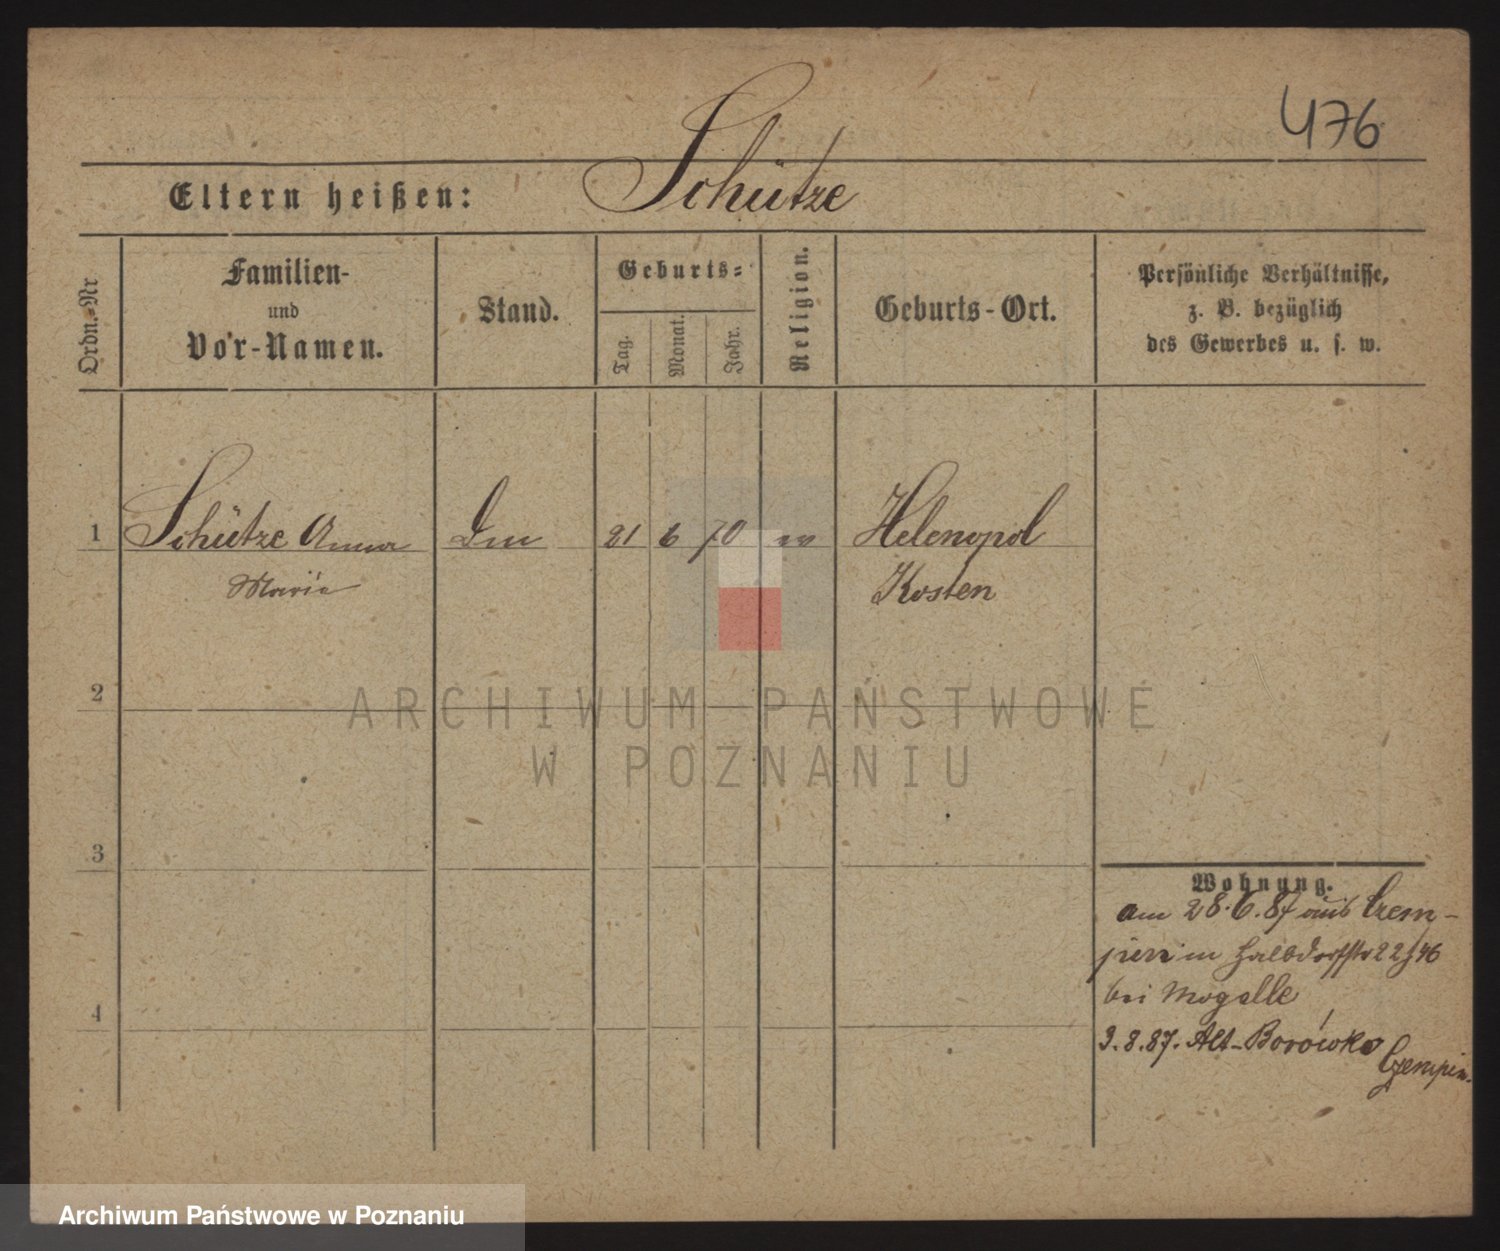 476
Eltern heißen: Schütze
Ordn.-Nr
Familien-
und
Vor-Namen.
Stand.
Geburts-
Tag.
Monat.
Jahr.
Religion.
Geburts-Ort.
Persönliche Verhältnisse,
z. B. bezüglich
des Gewerbes u. s. w.
1 Schütze Anna 21 6 70 Helenopol
Marie Kosten
2
ARCHIWUM PAŃSTWOWE
W POZNANIU
3
4
Wohnung.
am 28.6.87 aus Czem-
pin in Halbdorfstr 22
bei Mogalle
3.8.87. Alt-Borówko
Czempin.
Archiwum Państwowe w Poznaniu